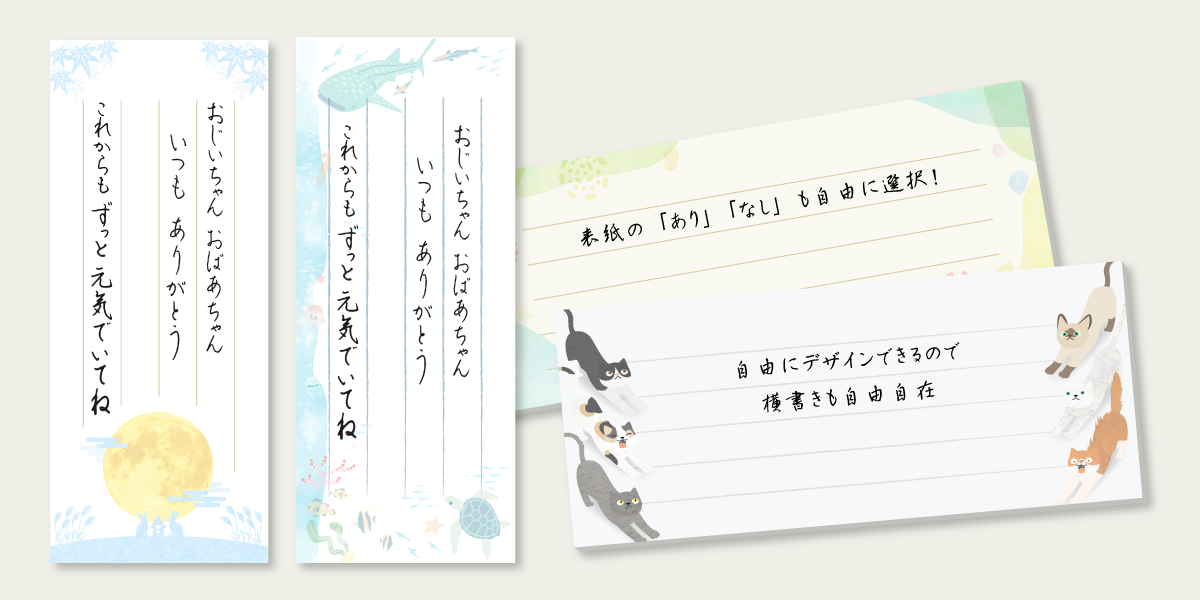 おじいちゃん おばあちゃん
いつも ありがとう
これからも ずっと 元気でいてね
おじいちゃん おばあちゃん
いつも ありがとう
これからも ずっと 元気でいてね
表紙の「あり」「なし」も自由に選択!
自由にデザインできるので
横書きも自由自在